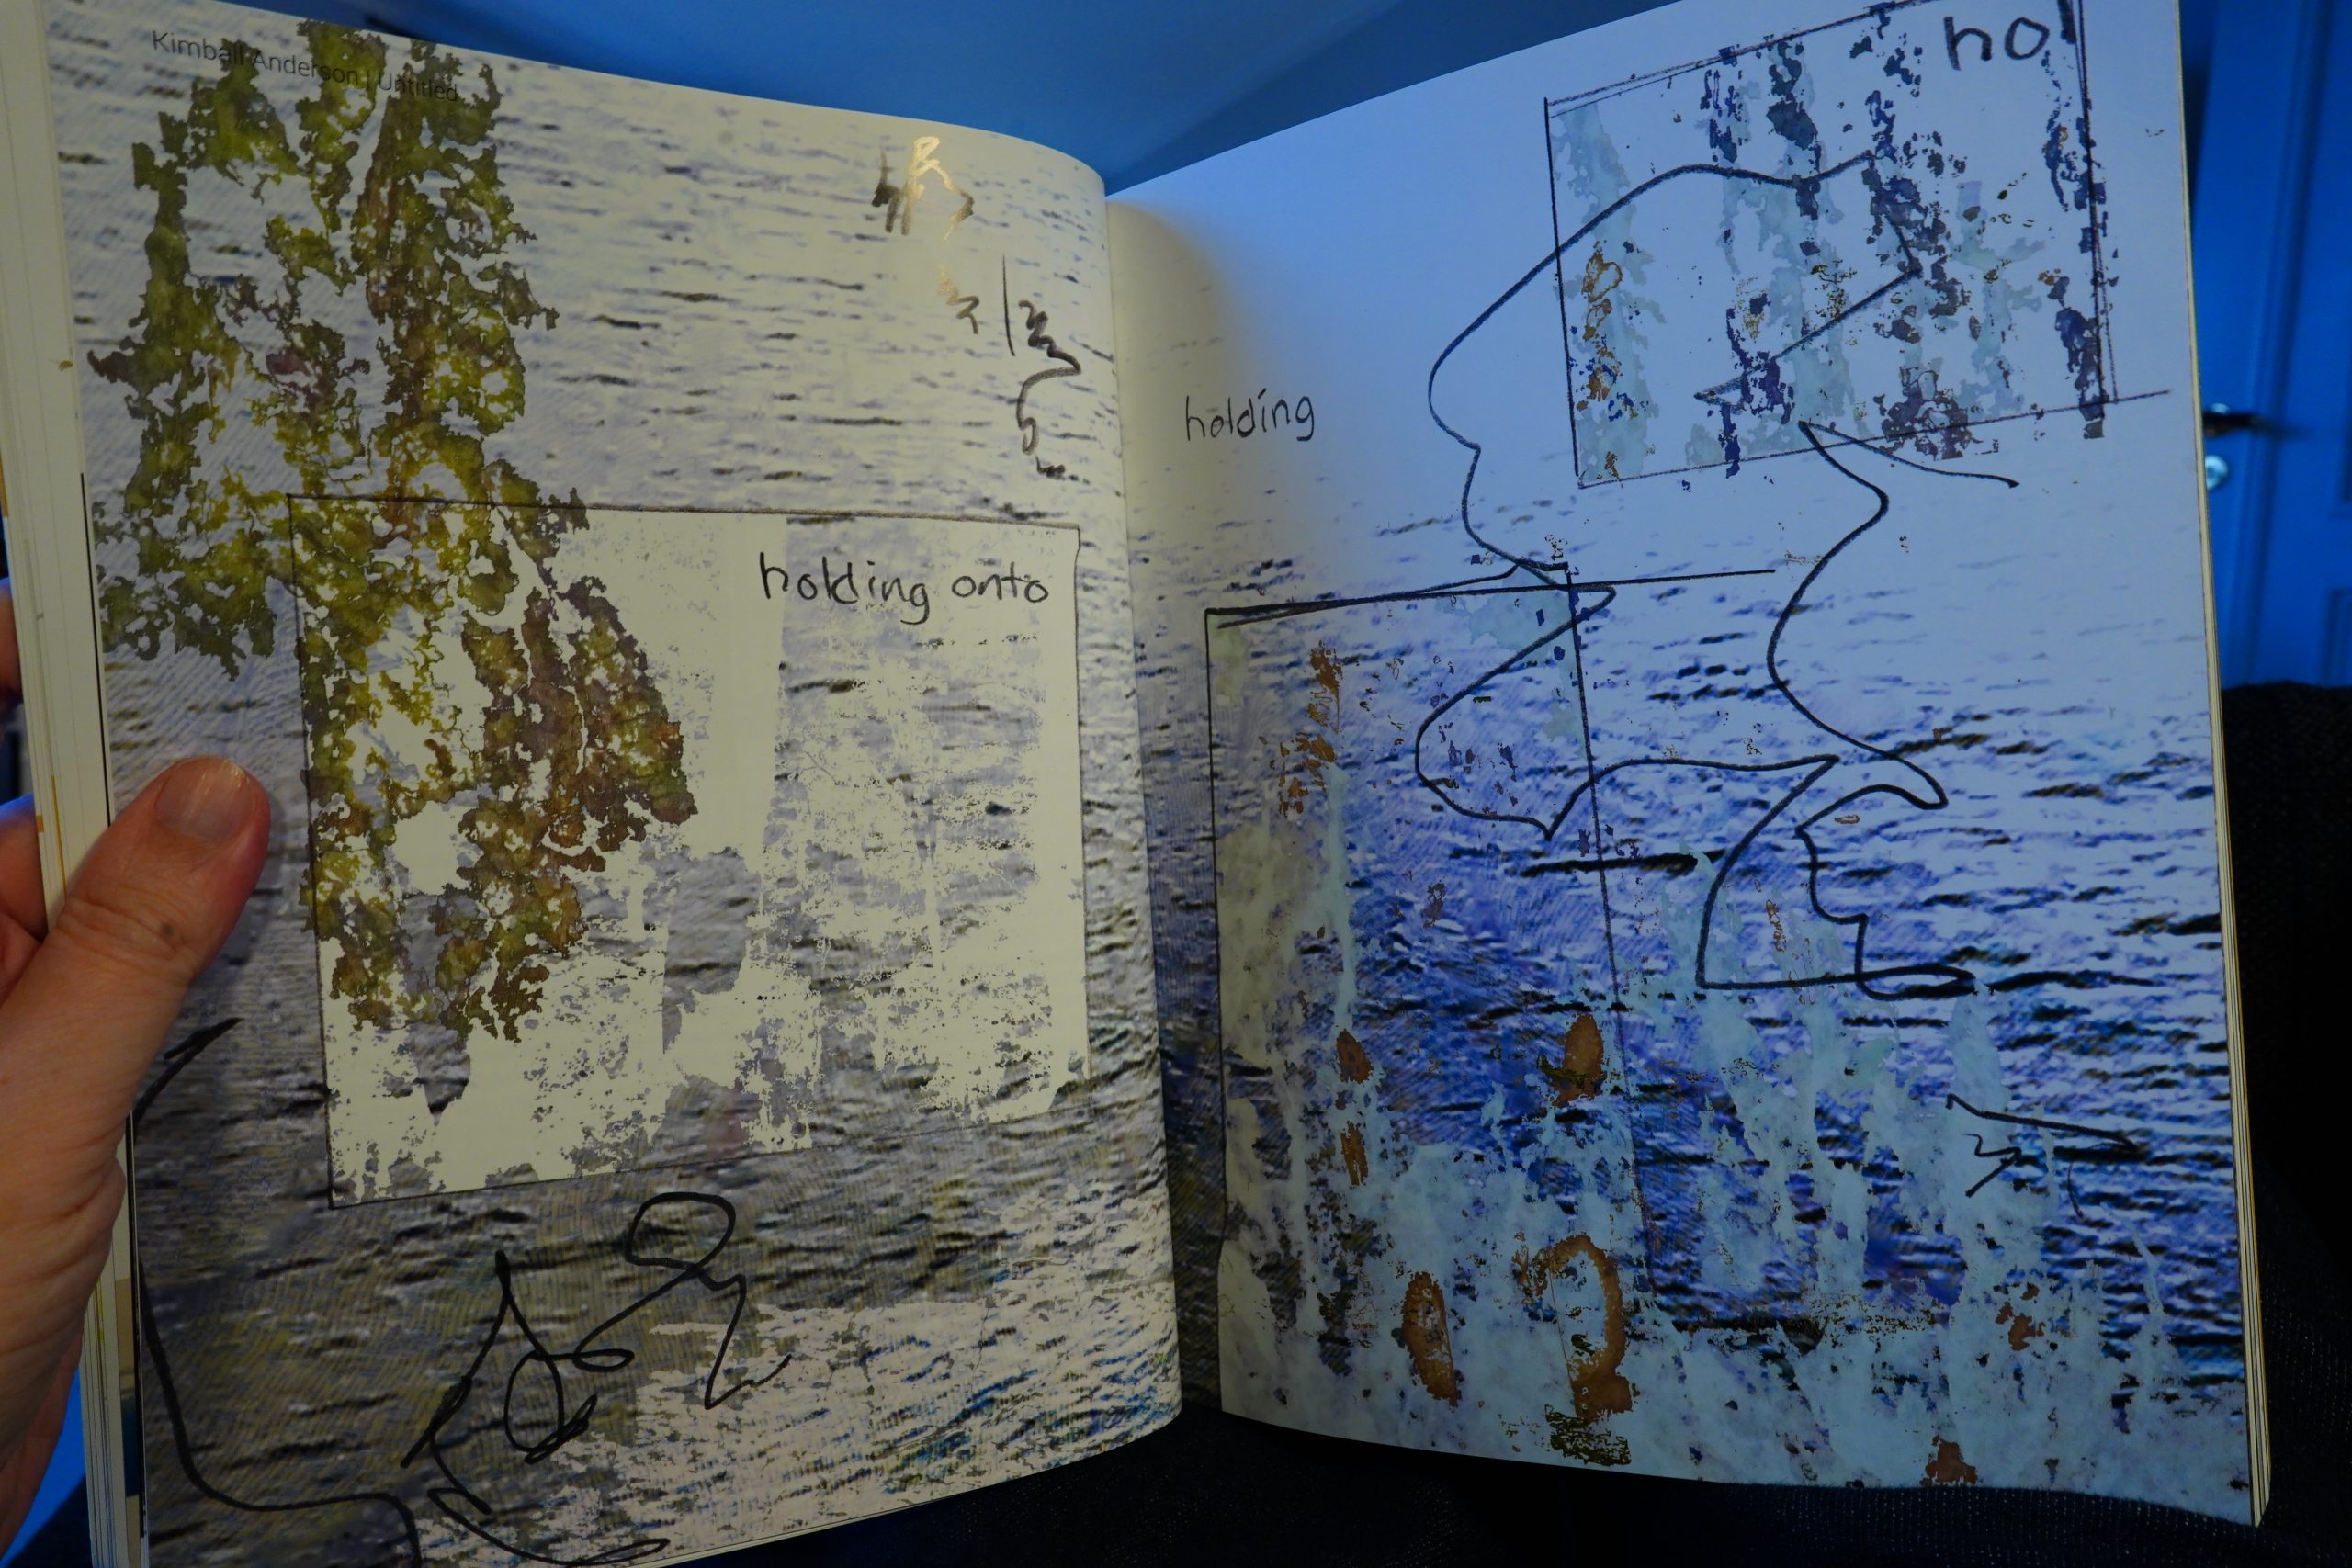 Kimball Anderson | Untitled
holding onto
holding
ho